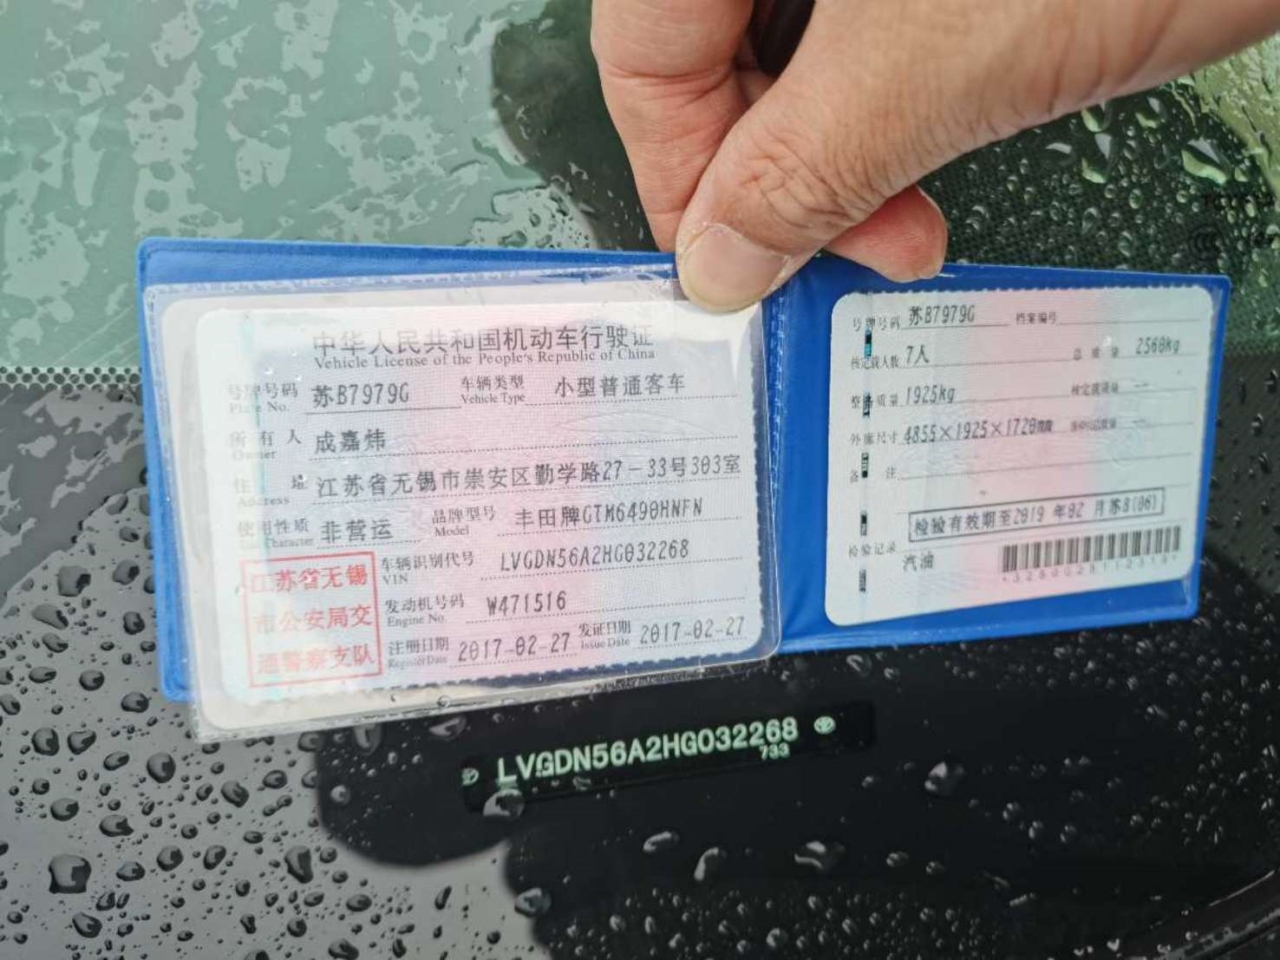 中华人民共和国机动车行驶证
Vehicle License of the People's Republic of China
号牌号码 苏B7979G 车辆类型 小型普通客车
Plate No. Vehicle Type
所有人 成嘉炜
Owner
住址 江苏省无锡市崇安区勤学路27-33号303室
Address
使用性质 非营运 品牌型号 丰田牌GTM6490HNFN
Use Character Model
江苏省无锡
市公安局交
通警察支队
车辆识别代号 LVGDN56A2HG032268
VIN
发动机号码 W471516
Engine No.
注册日期 2017-02-27 发证日期 2017-02-27
Register Date Issue Date
号牌号码 苏B7979G 档案编号
核定载人数 7人 总质量 2560kg
整备质量 1925kg 核定载质量 --
外廓尺寸 4855×1925×1720mm --
备注
检验有效期至2019年02月苏B(06)
检验记录
汽油
LVGDN56A2HG032268
733